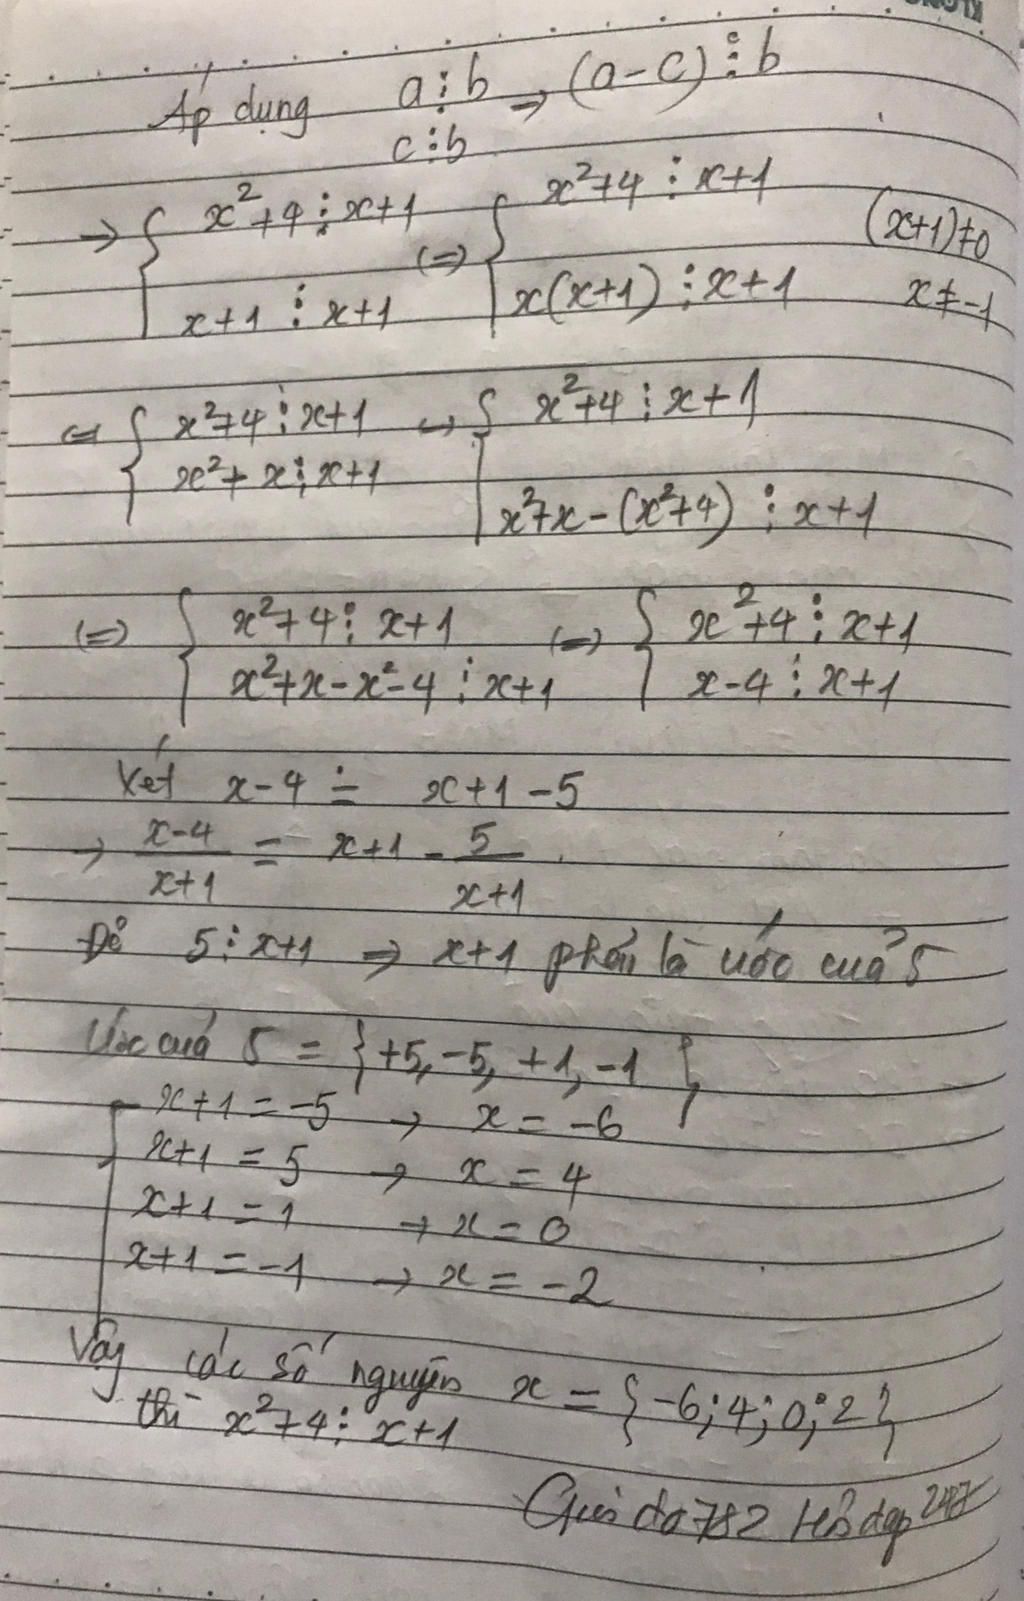 Áp dụng a⋮b → (a-c)⋮b
c⋮b
→ { x²+4⋮x+1 (=) { x²+4⋮x+1 (x+1)≠0
x+1⋮x+1 x(x+1)⋮x+1 x≠-1
(=) { x²+4⋮x+1 (=) { x²+4⋮x+1
x²+x⋮x+1 x²+x-(x²+4)⋮x+1
(=) { x²+4⋮x+1 (=) { x²+4⋮x+1
x²+x-x²-4⋮x+1 x-4⋮x+1
Xét x-4 = x+1-5
→ x-4/x+1 = x+1 - 5/x+1
Để 5⋮x+1 => x+1 phải là ước của 5
Ước của 5 = {+5,-5,+1,-1}
[ x+1=-5 → x=-6
x+1=5 → x=4
x+1=1 → x=0
x+1=-1 → x=-2
Vậy các số nguyên x={-6;4;0;2}
thì x²+4⋮x+1
782 Hỏi đáp 247